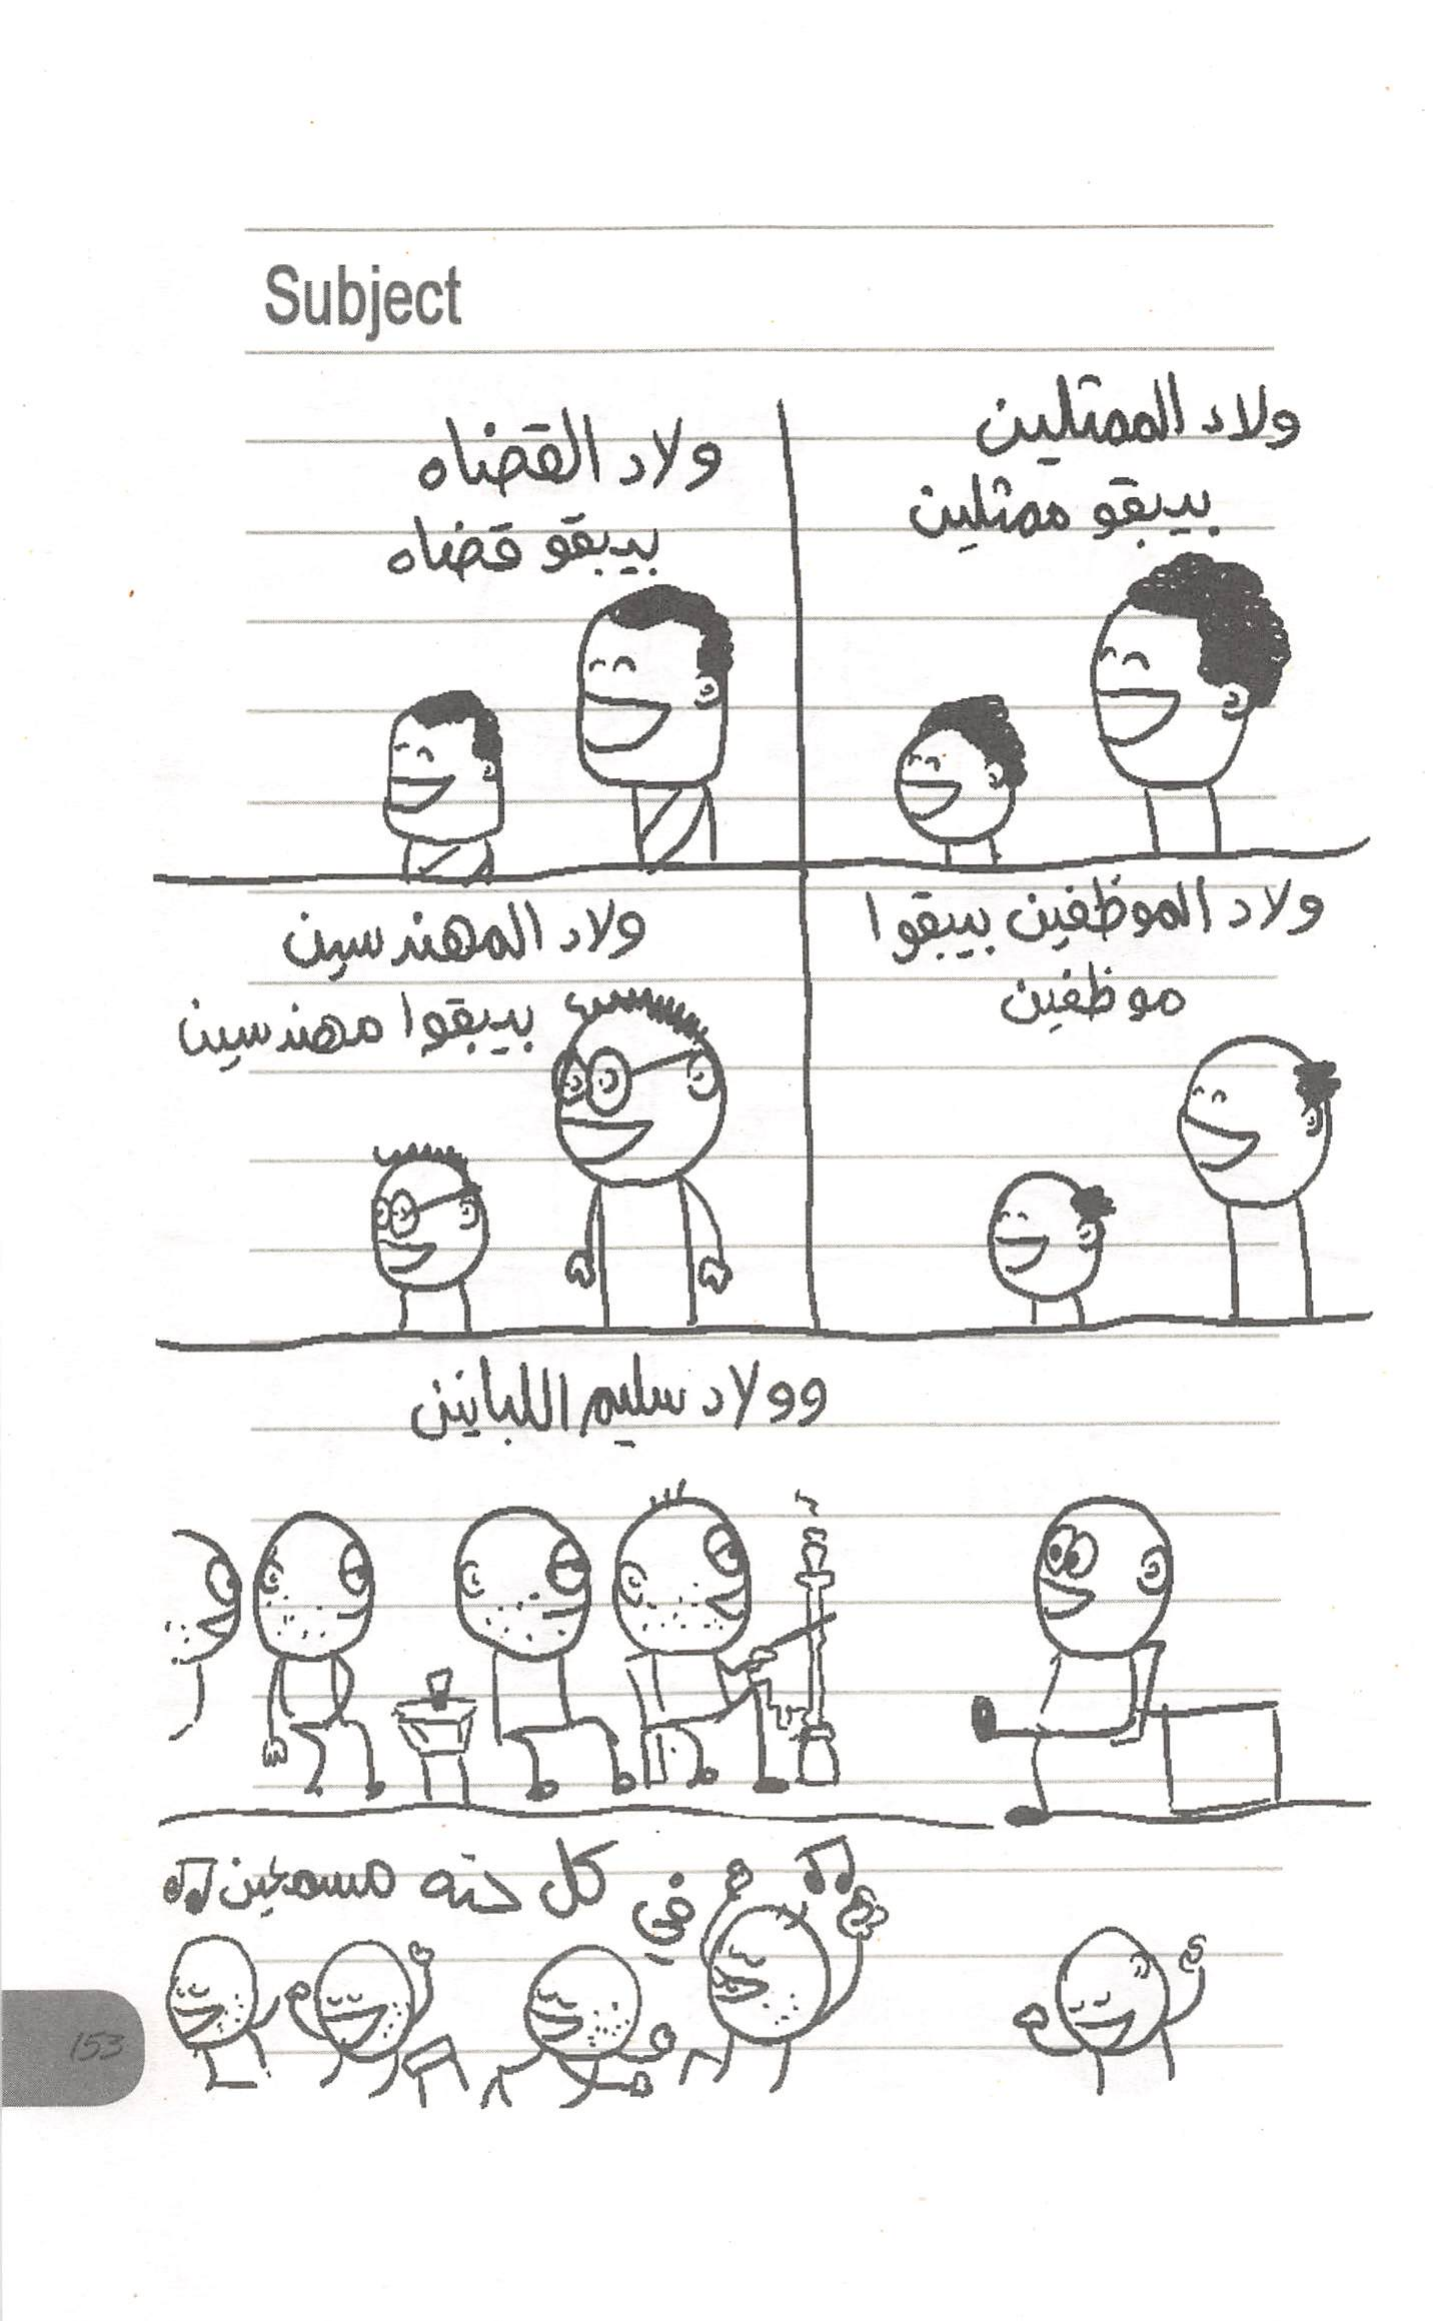 Subject
ولاد الممثلين
بيبقو ممثلين
ولاد القضاه
بيبقو قضاه
ولاد الموظفين بيبقوا
موظفين
ولاد المهندسين
بيبقوا مهندسين
وولاد سليم اللبانين
في كل حته مسمعين
153